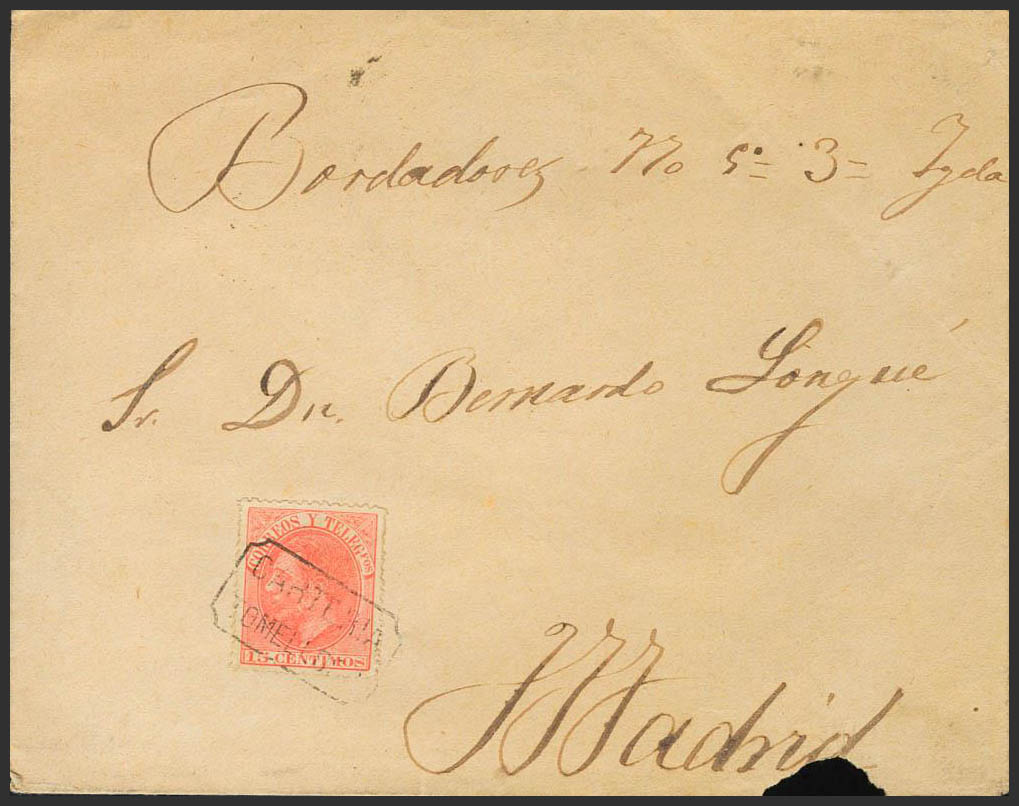 Bordadores No 5º= 3= Izda
Sr. Dn. Bernardo Longué
CORREOS Y TELEGFOS
CARTERIA
15-CENTIMOS
Madrid